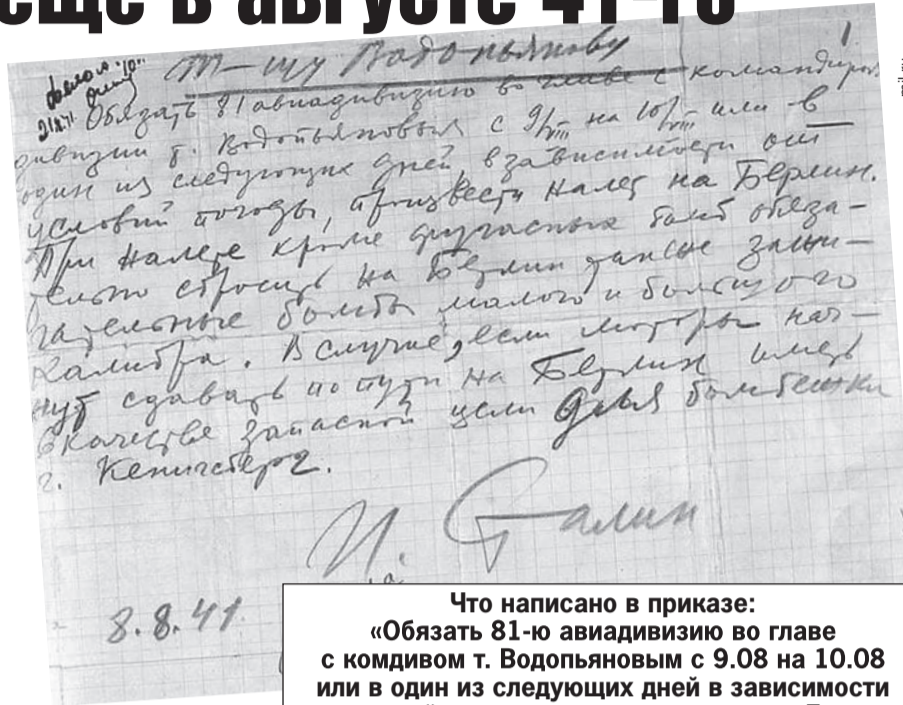 еще в августе 41-го
Т-щу Водопьянову
1
21.X.41
Обязать 81 авиадивизию во главе с командиром
дивизии т. Водопьяновым с 9/VIII на 10/VIII или в
один из следующих дней в зависимости от
условий погоды, произвести налет на Берлин.
При налете кроме фугасных бомб обяза-
тельно сбросить на Берлин также зажи-
гательные бомбы малого и большого
калибра. В случае, если моторы нач-
нут сдавать по пути на Берлин иметь
в качестве запасной цели для бомбежки
г. Кенигсберг.
И. Сталин
8.8.41
Что написано в приказе:
«Обязать 81-ю авиадивизию во главе
с комдивом т. Водопьяновым с 9.08 на 10.08
или в один из следующих дней в зависимости